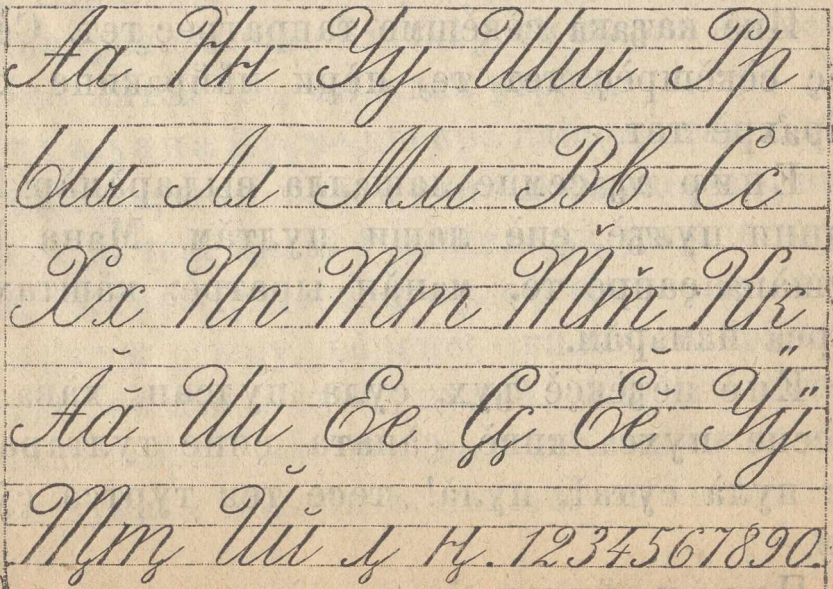 Аа Нн Уу Шш Рр
Ыы Лл Мм Вв Сс
Хх Пп Тт Т̌т̌ Кк
Ӑӑ Ии Ее Ҫҫ Ӗӗ Ӳӳ
Ꚋꚋ Йй ԡ ԣ. 1234567890.